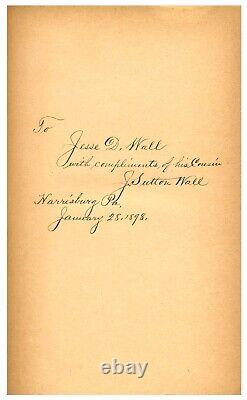 To
Jesse D. Wall
with compliments of his Cousin
J. Sutton Wall
Harrisburg Pa,
January 28. 1898.